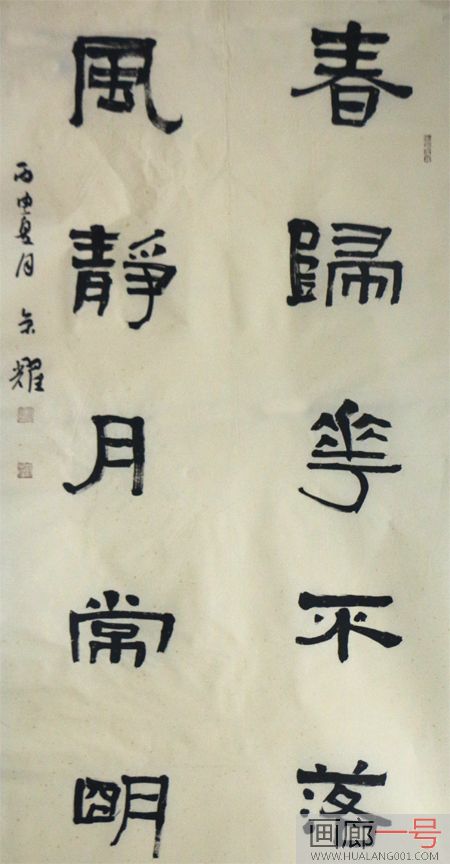 春歸花不落
風靜月常明
丙申夏月 余耀
画廊一号
WWW.HUALANG001.COM